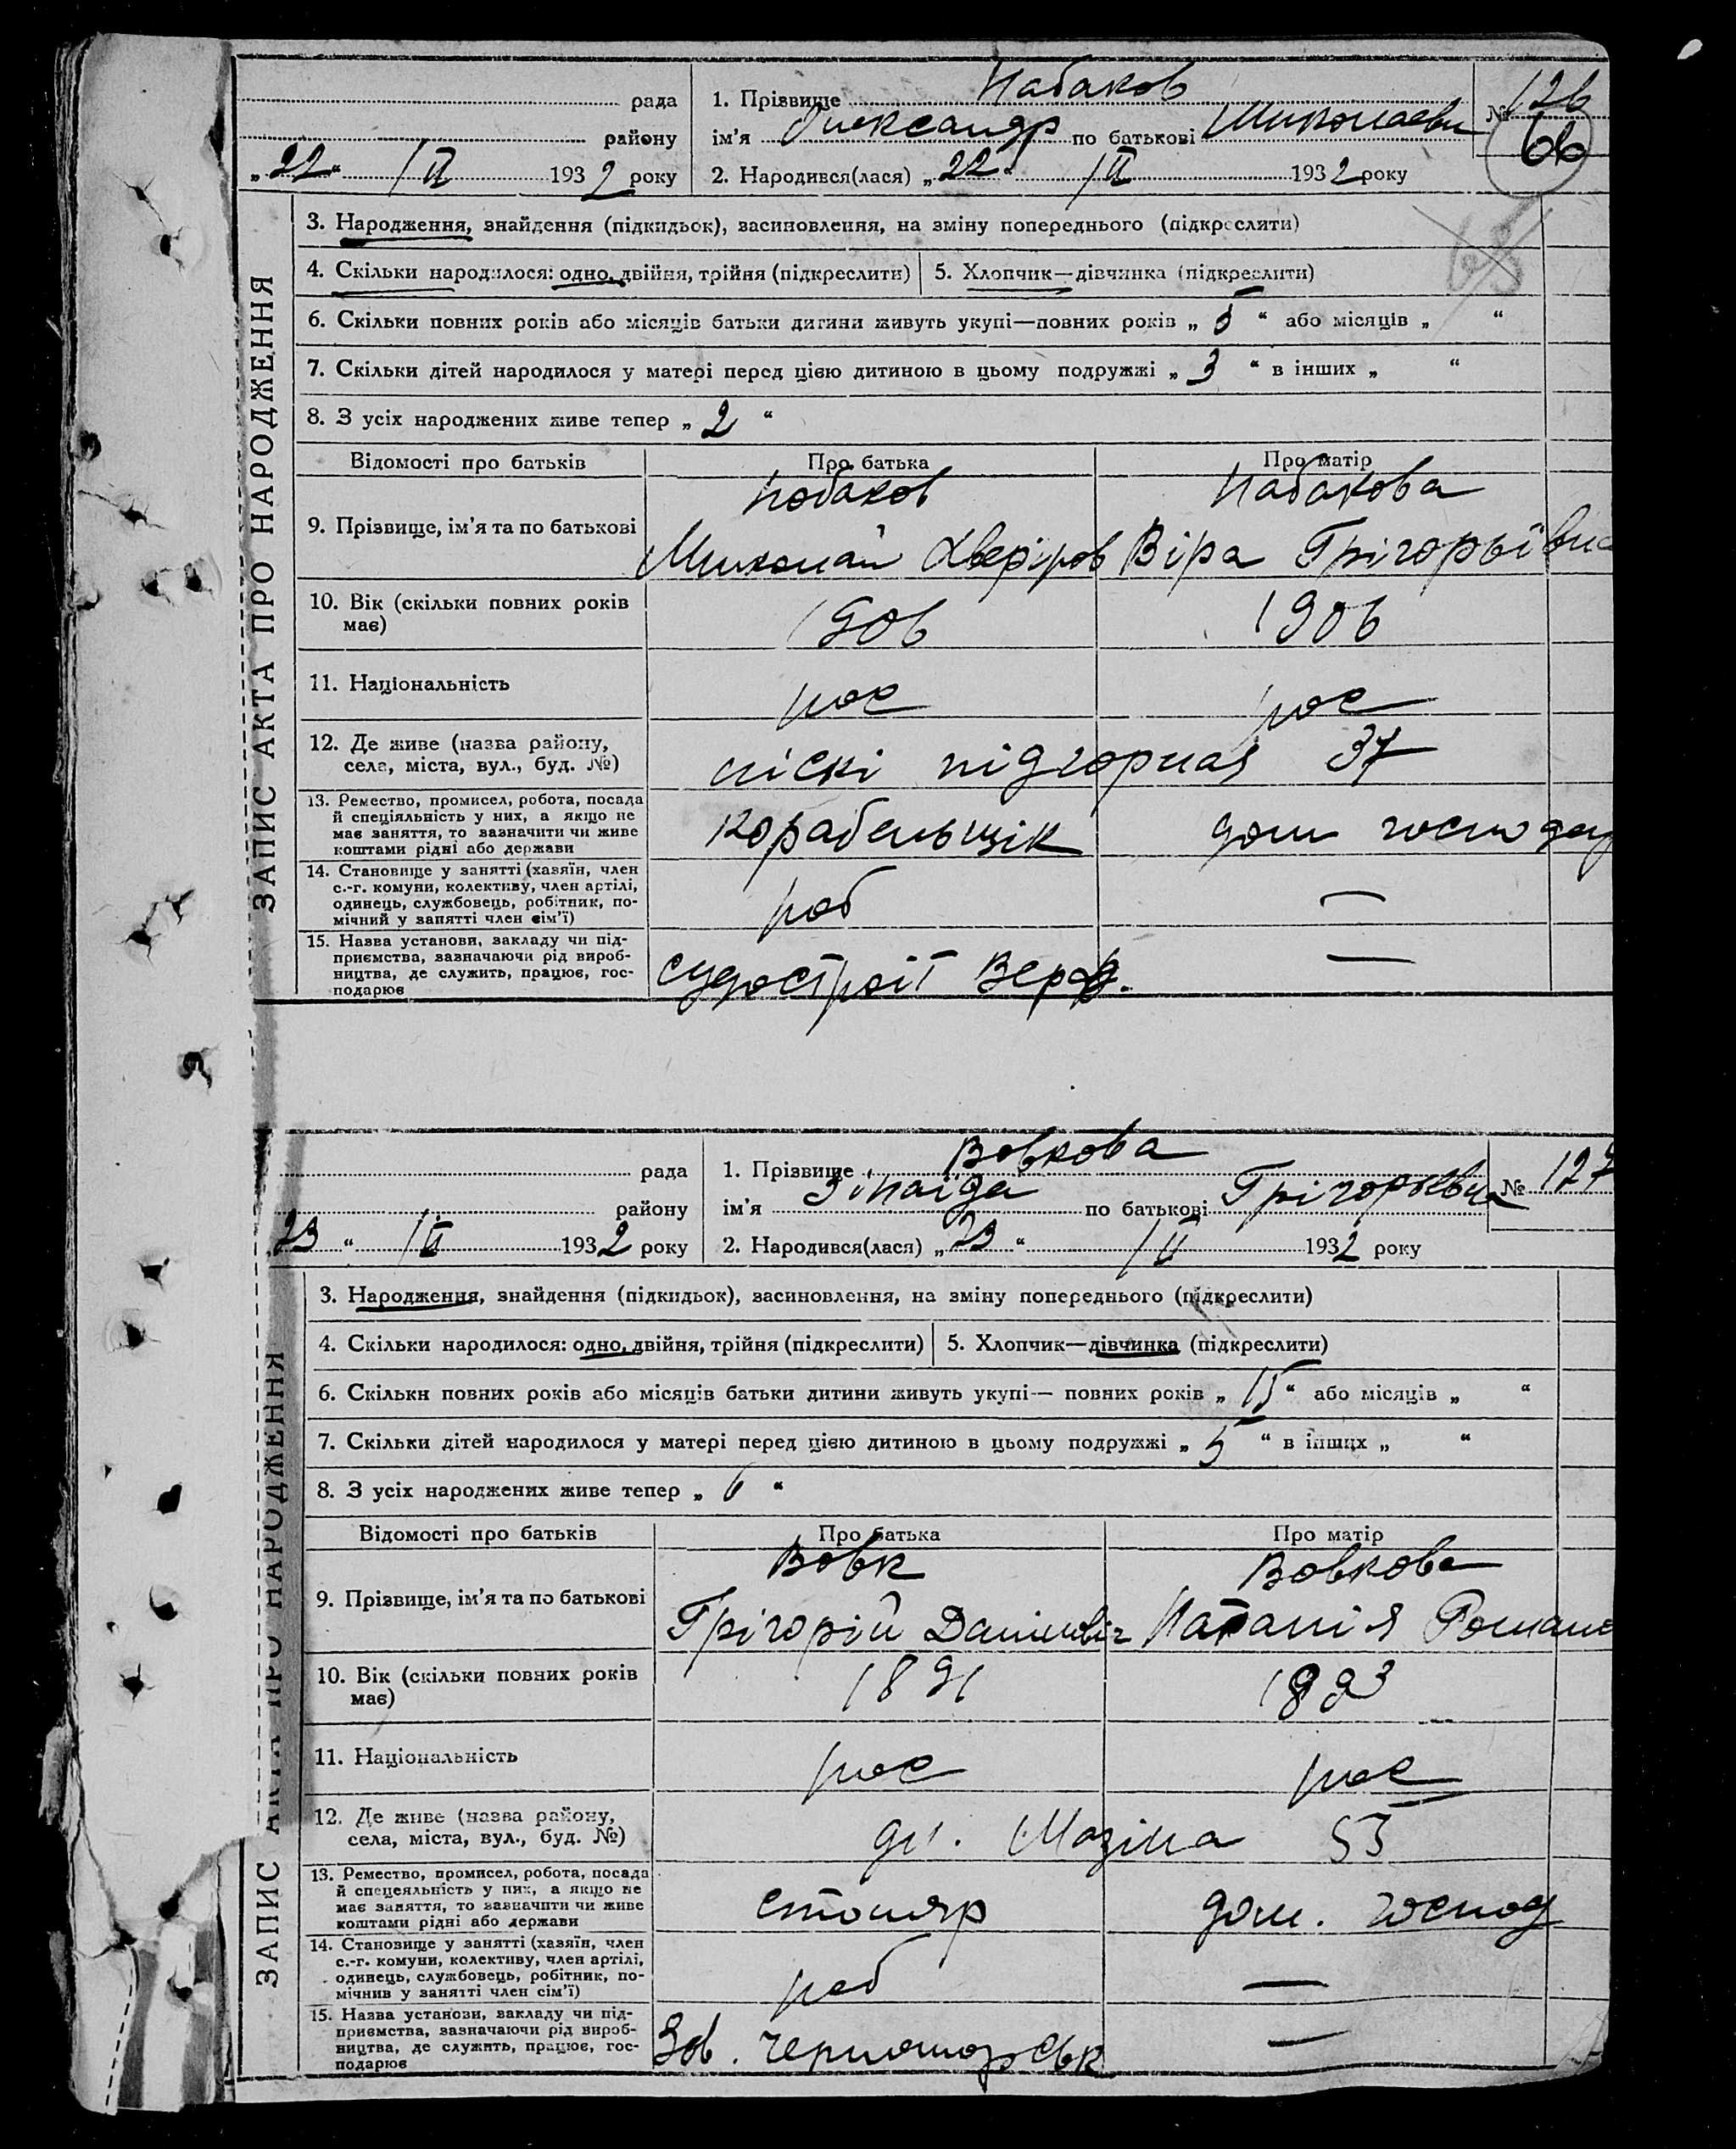 рада
1. Прізвище Набаков
№ 126
району
ім'я Олександр по батькові Миколаевич
66
„22“ /II 1932 року
2. Народився(лася) „22“ /II 1932 року
ЗАПИС АКТА ПРО НАРОДЖЕННЯ
3. Народження, знайдення (підкидьок), засиновлення, на зміну попереднього (підкреслити)
4. Скільки народилося: одно, двійня, трійня (підкреслити)
5. Хлопчик—дівчинка (підкреслити)
6. Скільки повних років або місяців батьки дитини живуть укупі—повних років „5“ або місяців „ “
7. Скільки дітей народилося у матері перед цією дитиною в цьому подружжі „3“ в інших „ “
8. З усіх народжених живе тепер „2“
Відомості про батьків
Про батька
Про матір
9. Прізвище, ім'я та по батькові
Набаков
Миколай
Набакова
Віра Грігорьівна
10. Вік (скільки повних років
має)
1906
1906
11. Національність
рос
рос
12. Де живе (назва району,
села, міста, вул., буд. №)
піскі підгорная 37
13. Ремество, промисел, робота, посада
й спеціяльність у них, а якщо не
має заняття, то зазначити чи живе
коштами рідні або держави
корабельщік
дом господар
14. Становище у занятті (хазяїн, член
с.-г. комуни, колективу, член артілі,
одинець, службовець, робітник, по-
мічний у занятті член сім'ї)
роб
—
15. Назва установи, закладу чи під-
приємства, зазначаючи рід вироб-
ництва, де служить, працює, гос-
подарює
судостроіт Верф.
—
рада
1. Прізвище Вовкова
№ 127
району
ім'я Зінаїда по батькові Грігорьевна
23“ /II 1932 року
2. Народився(лася) „23“ /II 1932 року
ЗАПИС АКТА ПРО НАРОДЖЕННЯ
3. Народження, знайдення (підкидьок), засиновлення, на зміну попереднього (підкреслити)
4. Скільки народилося: одно, двійня, трійня (підкреслити)
5. Хлопчик—дівчинка (підкреслити)
6. Скільки повних років або місяців батьки дитини живуть укупі— повних років „15“ або місяців „ “
7. Скільки дітей народилося у матері перед цією дитиною в цьому подружжі „5“ в інших „ “
8. З усіх народжених живе тепер „6“
Відомості про батьків
Про батька
Про матір
9. Прізвище, ім'я та по батькові
Вовк
Грігорій Даніловіч
Вовкова
Наталія Романо
10. Вік (скільки повних років
має)
1891
1893
11. Національність
рос
рос
12. Де живе (назва району,
села, міста, вул., буд. №)
Мазіна 55
13. Ремество, промисел, робота, посада
й спецеяльність у них, а якщо не
має заняття, то зазначити чи живе
коштами рідні або держави
столяр
дом. господ
14. Становище у занятті (хазяїн, член
с.-г. комуни, колективу, член артілі,
одинець, службовець, робітник, по-
мічнив у занятті член сім'ї)
роб
—
15. Назва установи, закладу чи під-
приємства, зазначаючи рід вироб-
ництва, де служить, працює, гос-
подарює
Зав. черноморськ
—